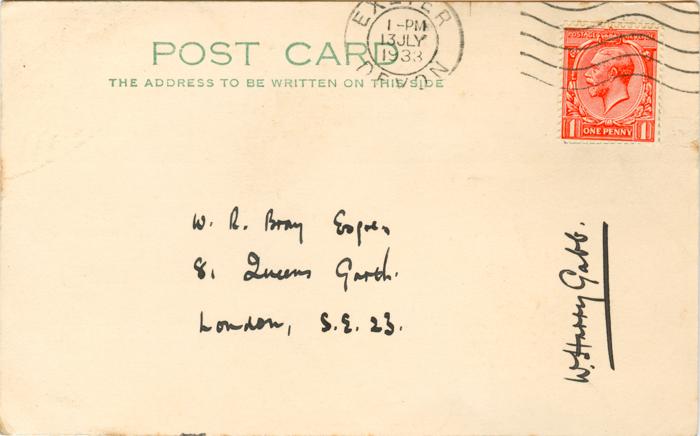 POST CARD
THE ADDRESS TO BE WRITTEN ON THIS SIDE
EXETER
1-PM
13 JLY
1933
DEVON
POSTAGE REVENUE
1 ONE PENNY 1
W. R. Bray Esqre,
8, Queens Garth.
London, S.E. 23.
W. Harry Gabb.